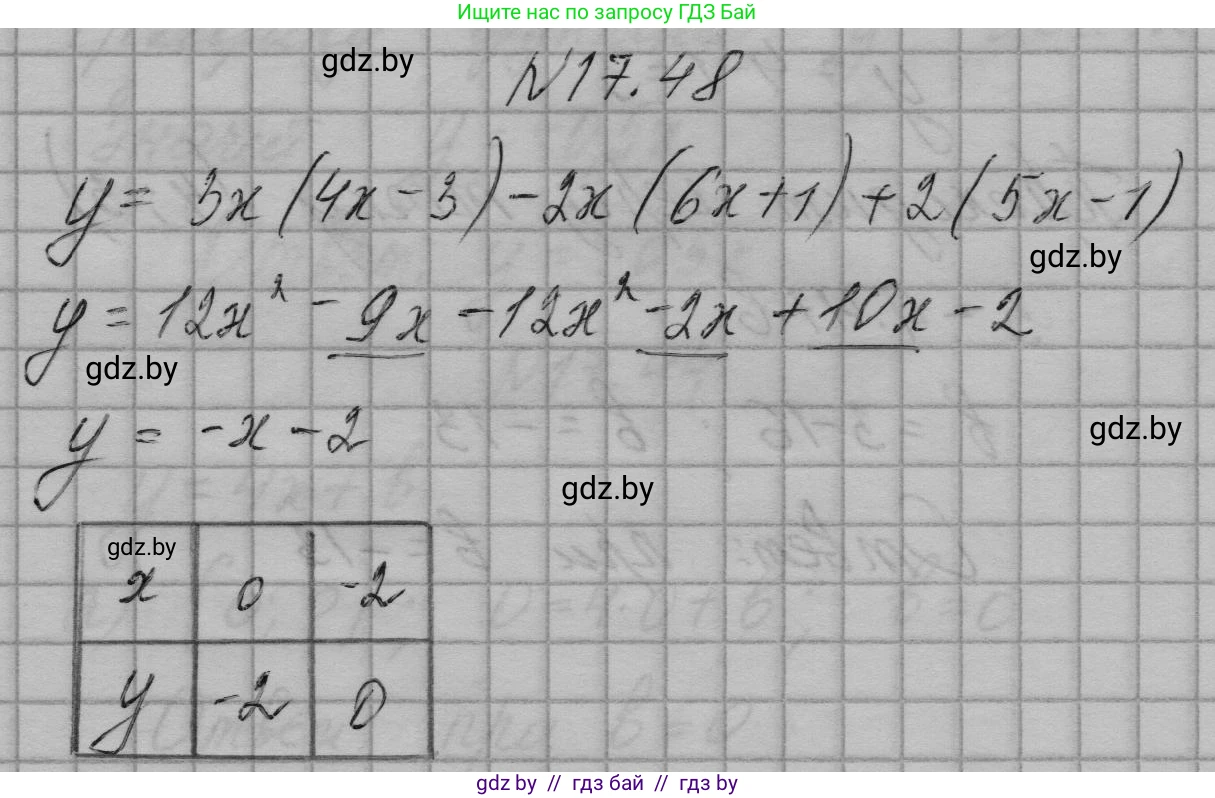 Ищите нас по запросу ГДЗ Бай
gdz.by
N17.48
y = 3x (4x - 3) - 2x (6x + 1) + 2 (5x - 1)
gdz.by
y = 12x² - 9x - 12x² - 2x + 10x - 2
gdz.by
y = -x - 2
gdz.by
gdz.by
gdz.by
x 0 -2
y -2 0
gdz.by // гдз бай // гдз by